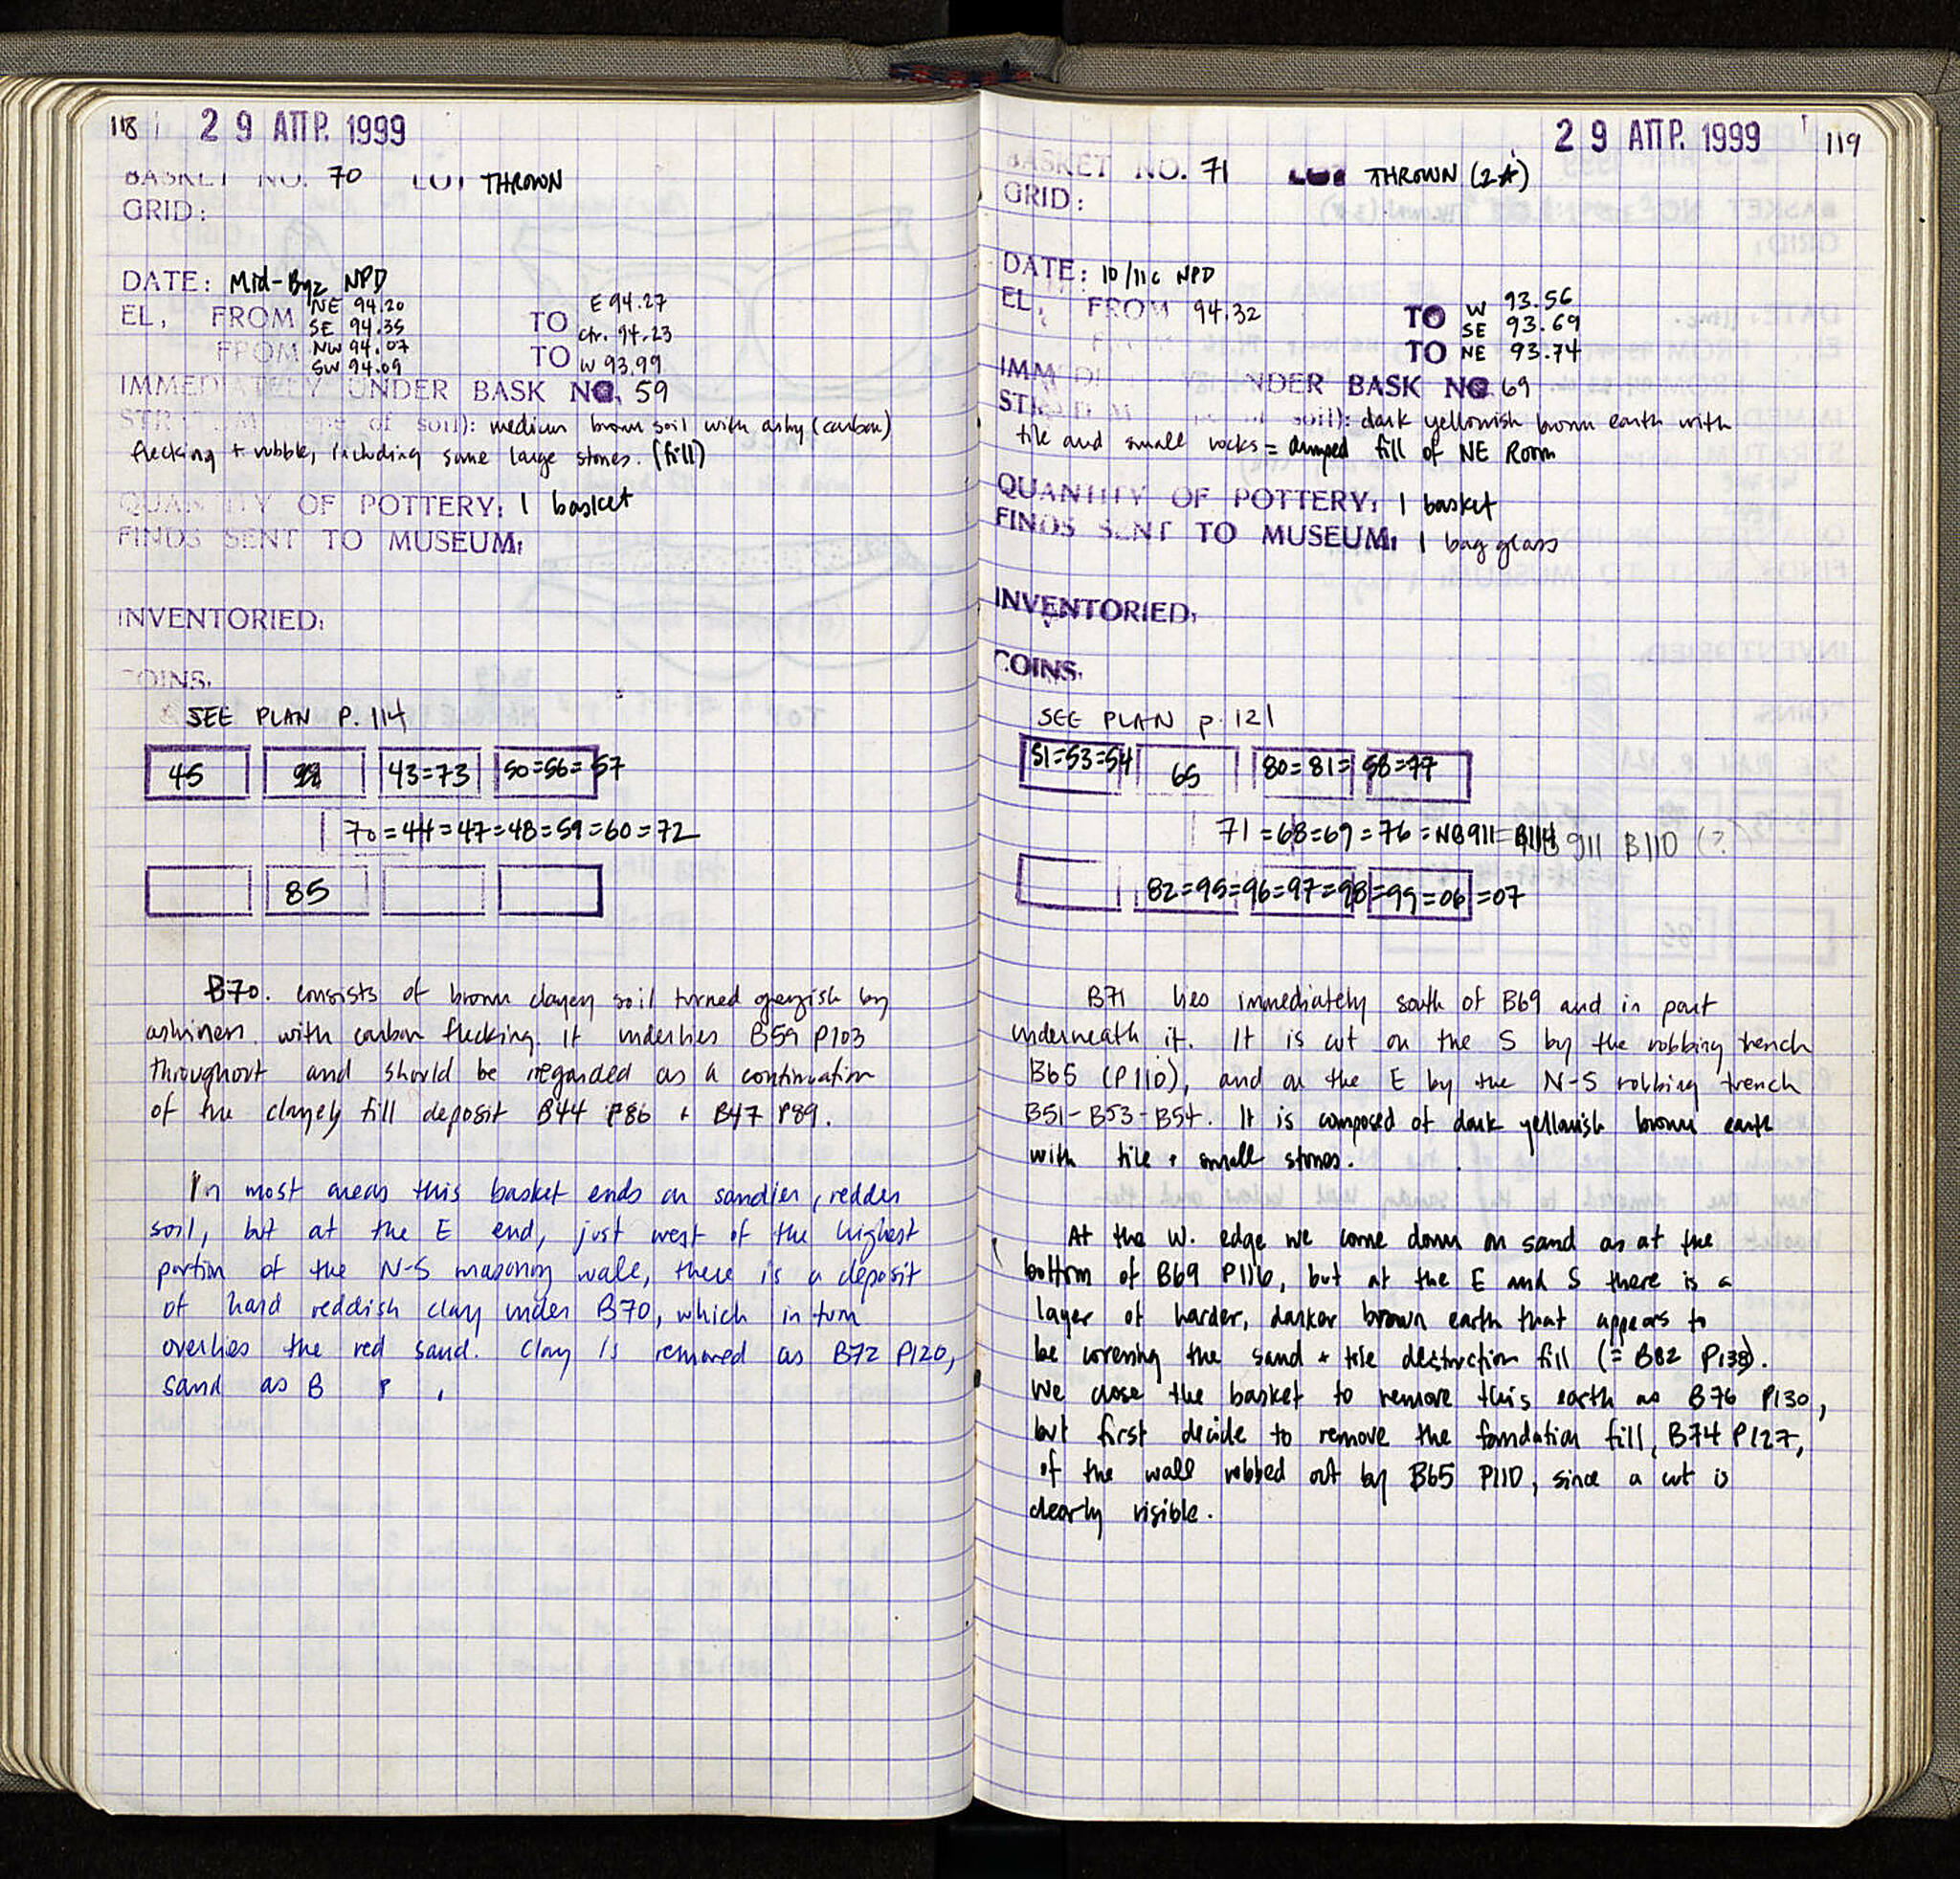 118
29 ΑΠΡ. 1999
BASKET NO. 70 LOT THROWN
GRID:
DATE: Mid-Byz NPD
EL, FROM NE 94.20 SE 94.35 TO E 94.27 ctr. 94.23
FROM NW 94.07 SW 94.09 TO W 93.99
IMMEDIATELY UNDER BASK NO. 59
STRATUM (type of soil): medium brown soil with ashy (carbon)
flecking + rubble, including some large stones. (fill)
QUANTITY OF POTTERY: 1 basket
FINDS SENT TO MUSEUM:
INVENTORIED:
COINS.
SEE PLAN P. 114
45 43=73 50=56=57
70=44=47=48=59=60=72
85
B70. consists of brown clayey soil turned greyish by
ashiness with carbon flecking. It underlies B59 P103
throughout and should be regarded as a continuation
of the clayely fill deposit B44 P86 + B47 P89.
In most areas this basket ends on sandier, redder
soil, but at the E end, just west of the highest
portion of the N-S masonry wall, there is a deposit
of hard reddish clay under B70, which in turn
overlies the red sand. Clay is removed as B72 P120,
sand as B P .
29 ΑΠΡ. 1999
119
BASKET NO. 71 LOT THROWN (2★)
GRID:
DATE: 10/11c NPD
EL, FROM 94.32 TO W 93.56 SE 93.69
TO NE 93.74
IMMEDI UNDER BASK NO. 69
STRATUM soil): dark yellowish brown earth with
tile and small rocks = dumped fill of NE Room
QUANTITY OF POTTERY: 1 basket
FINDS SENT TO MUSEUM: 1 bag glass
INVENTORIED:
COINS.
SEE PLAN p. 121
51=53=54 65 80=81= 58=77
71=68=69=76=NB911=B114 911 B110 (?
82=95=96=97=98=99=06=07
B71 lies immediately south of B69 and in part
underneath it. It is cut on the S by the robbing trench
B65 (P110), and on the E by the N-S robbing trench
B51-B53-B54. It is composed of dark yellowish brown earth
with tile + small stones.
At the W. edge we come down on sand as at the
bottom of B69 P116, but at the E and S there is a
layer of harder, darker brown earth that appears to
be covering the sand + tile destruction fill (= B82 P138).
We close the basket to remove this earth as B76 P130,
but first decide to remove the foundation fill, B74 P127,
of the wall robbed out by B65 P110, since a cut is
clearly visible.